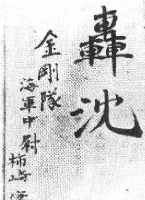 轟沈
金剛隊
海軍中尉
柿崎